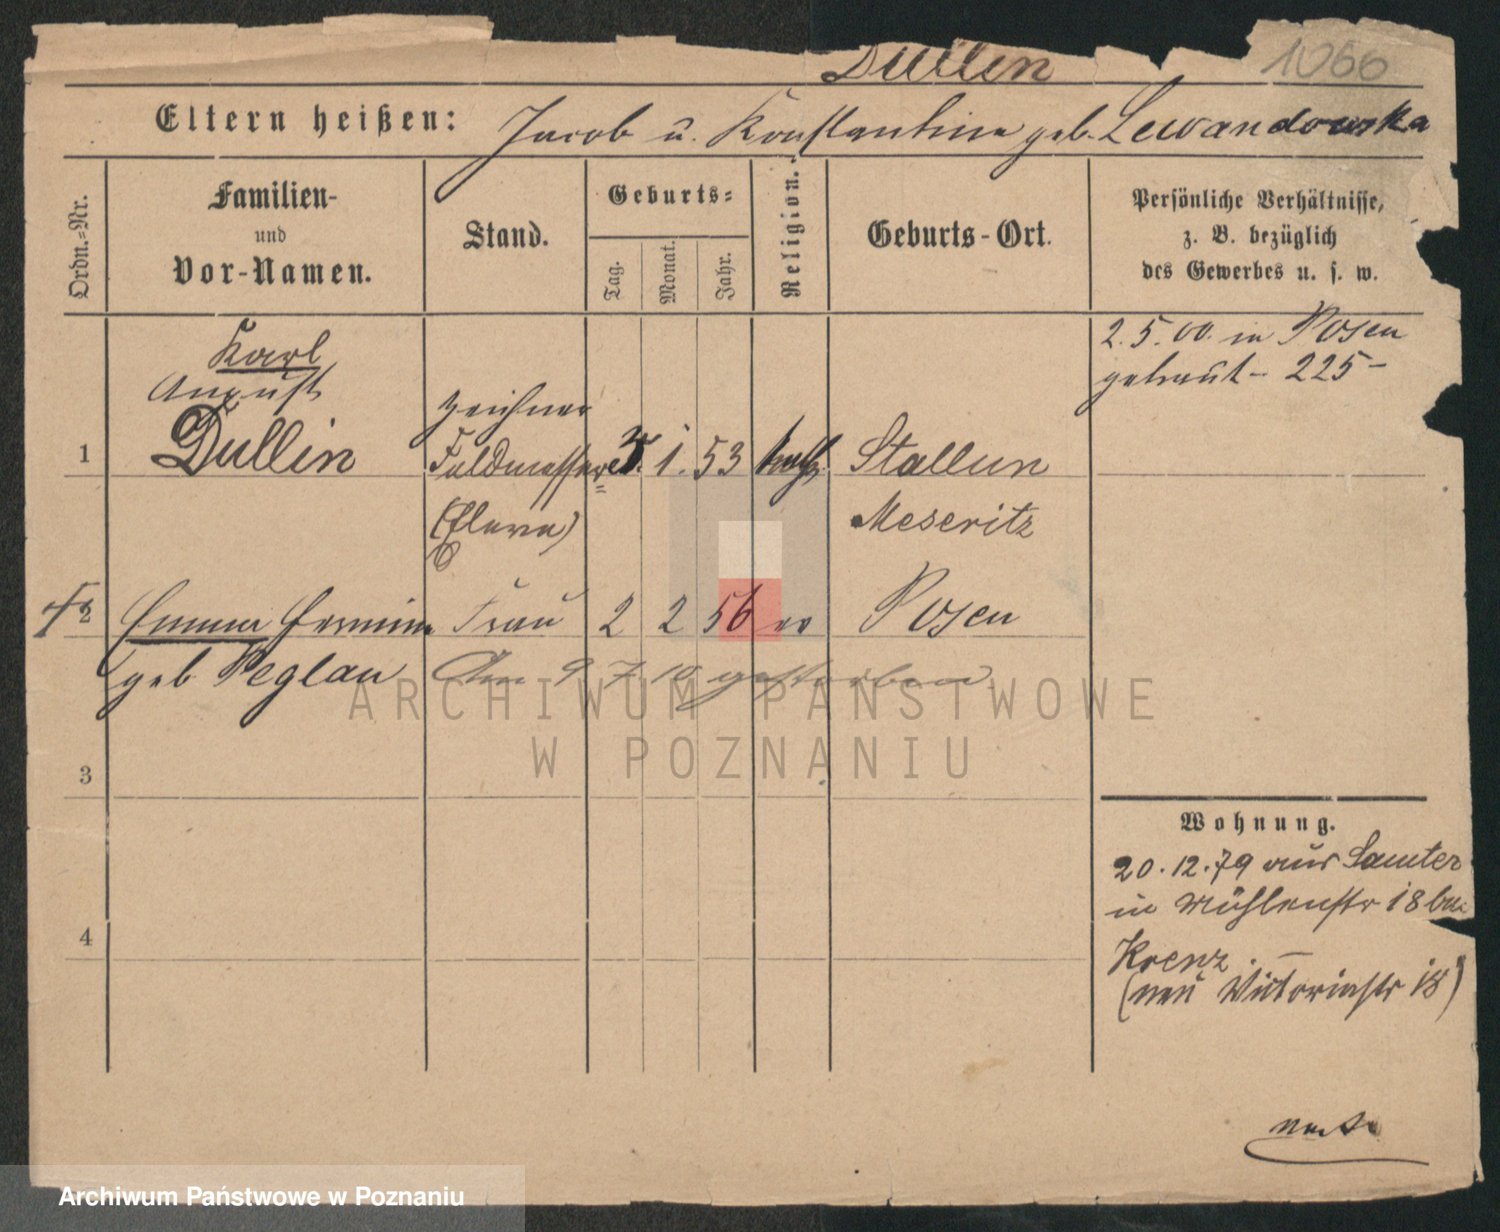 Dullin
1066
Eltern heißen: Jacob u. Konstantina geb. Lewandowska
Ordn.=Nr.
Familien-
und
Vor-Namen.
Stand.
Geburts=
Tag.
Monat.
Jahr.
Religion.
Geburts-Ort.
Persönliche Verhältnisse,
z. B. bezüglich
des Gewerbes u. s. w.
2.5.00. in Posen
getraut - 225 -
Karl
August
1 Dullin
Zeichner
Feldmesser
(Eleve)
5. 1. 53 kath. Stallun
Meseritz
2 Emma Hermine Frau 2 2 56 Posen
geb Peglau Am 9 7 10 gestorben
ARCHIWUM PAŃSTWOWE
W POZNANIU
3
4
Wohnung.
20.12.79 aus Samter
in Mühlenstr 18 bei
Krenz.
(neu Victoriastr 18)
Archiwum Państwowe w Poznaniu